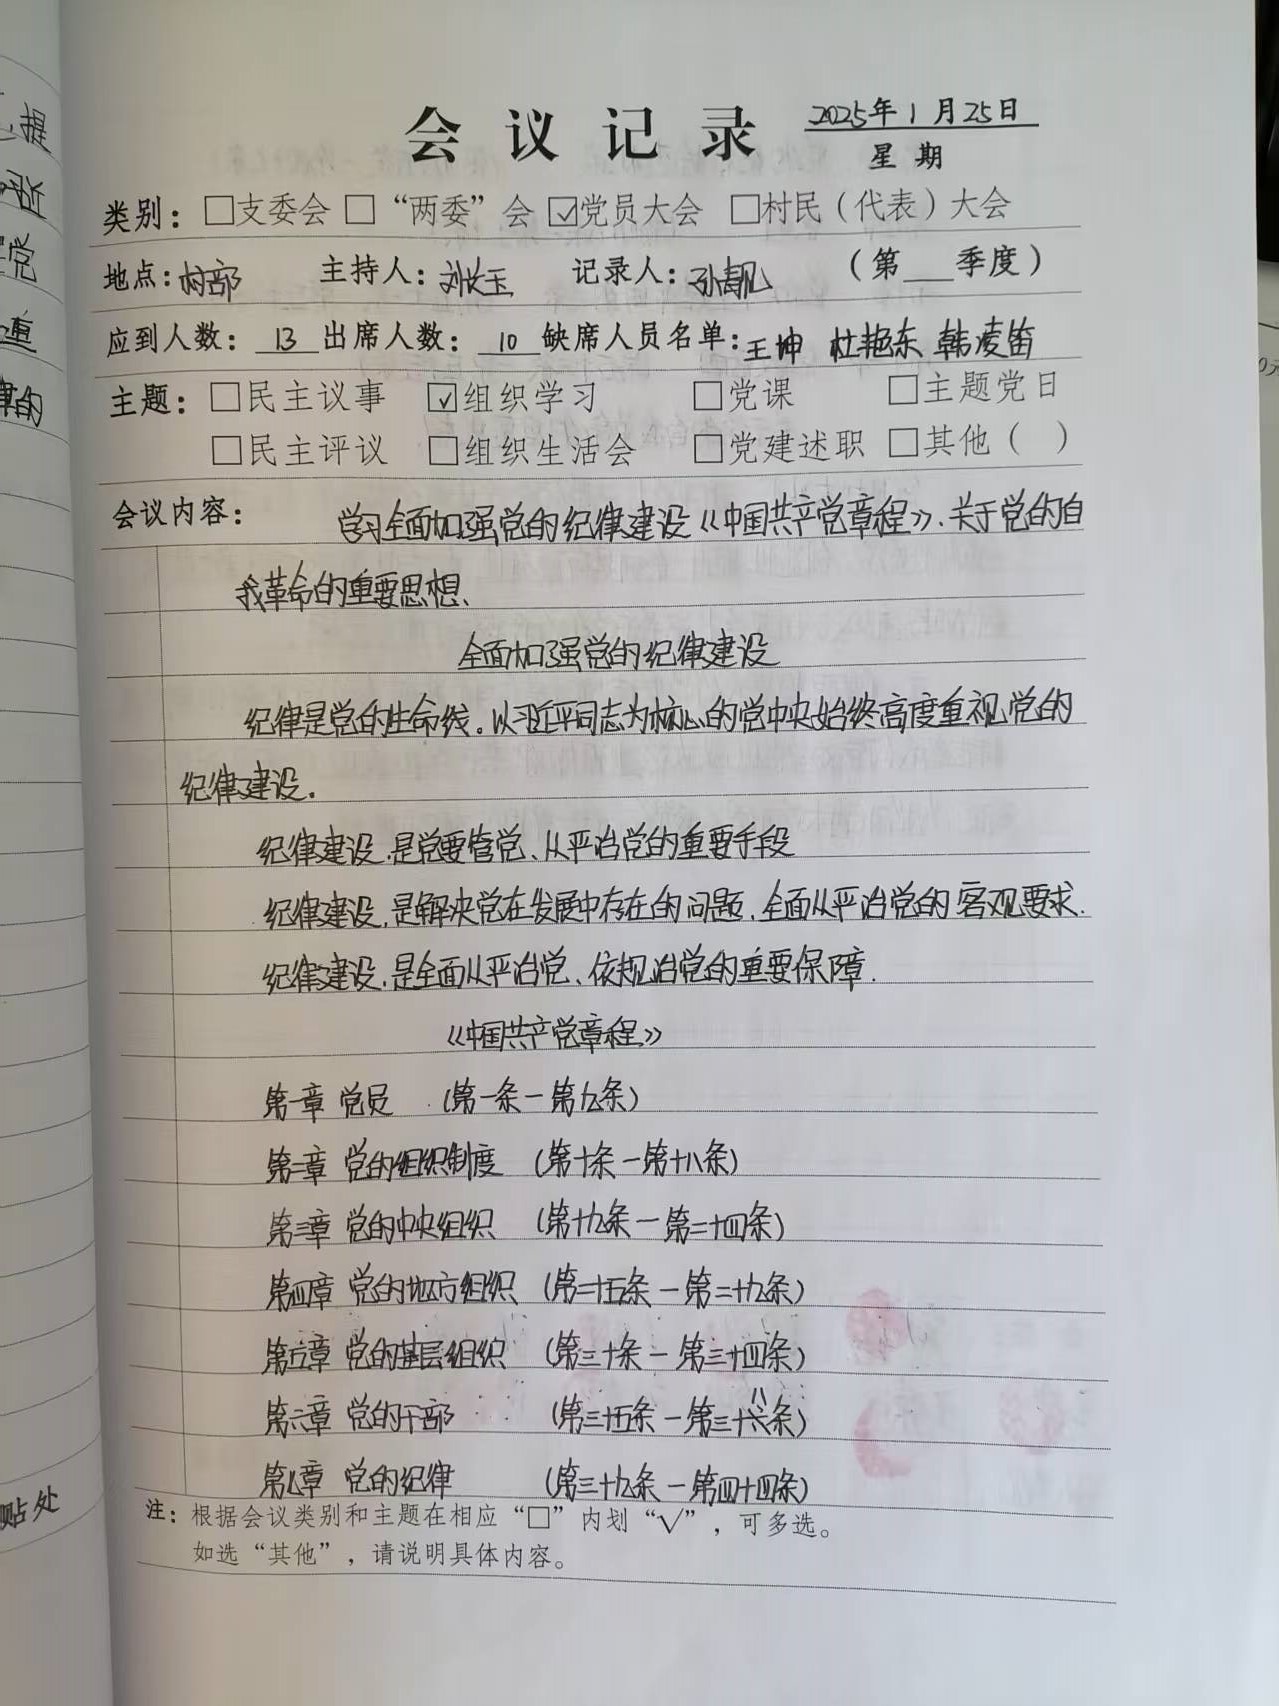 会议记录 2025年1月25日
星期
类别：□支委会 □“两委”会 ☑党员大会 □村民（代表）大会
地点：村部 主持人：刘长玉 记录人： （第 季度）
应到人数：13 出席人数：10 缺席人员名单：王坤 杜艳东 韩凌笛
主题：□民主议事 ☑组织学习 □党课 □主题党日
□民主评议 □组织生活会 □党建述职 □其他（ ）
会议内容： 学习全面加强党的纪律建设《中国共产党章程》、关于党的自
我革命的重要思想、
全面加强党的纪律建设
纪律是党的生命线。以习近平同志为核心的党中央始终高度重视党的
纪律建设.
纪律建设,是党要管党、从严治党的重要手段
纪律建设,是解决党在发展中存在的问题,全面从严治党的客观要求.
纪律建设,是全面从严治党、依规治党的重要保障.
《中国共产党章程》
第一章 党员 (第一条－第九条)
第二章 党的组织制度 (第十条－第十八条)
第三章 党的中央组织 (第十九条－第二十四条)
第四章 党的地方组织 (第二十五条－第二十九条)
第五章 党的基层组织 (第三十条－第三十四条)
第六章 党的干部 (第三十五条－第三十八条)
第七章 党的纪律 (第三十九条－第四十四条)
注：根据会议类别和主题在相应“□”内划“√”，可多选。
如选“其他”，请说明具体内容。
提
党
重
的
贴处